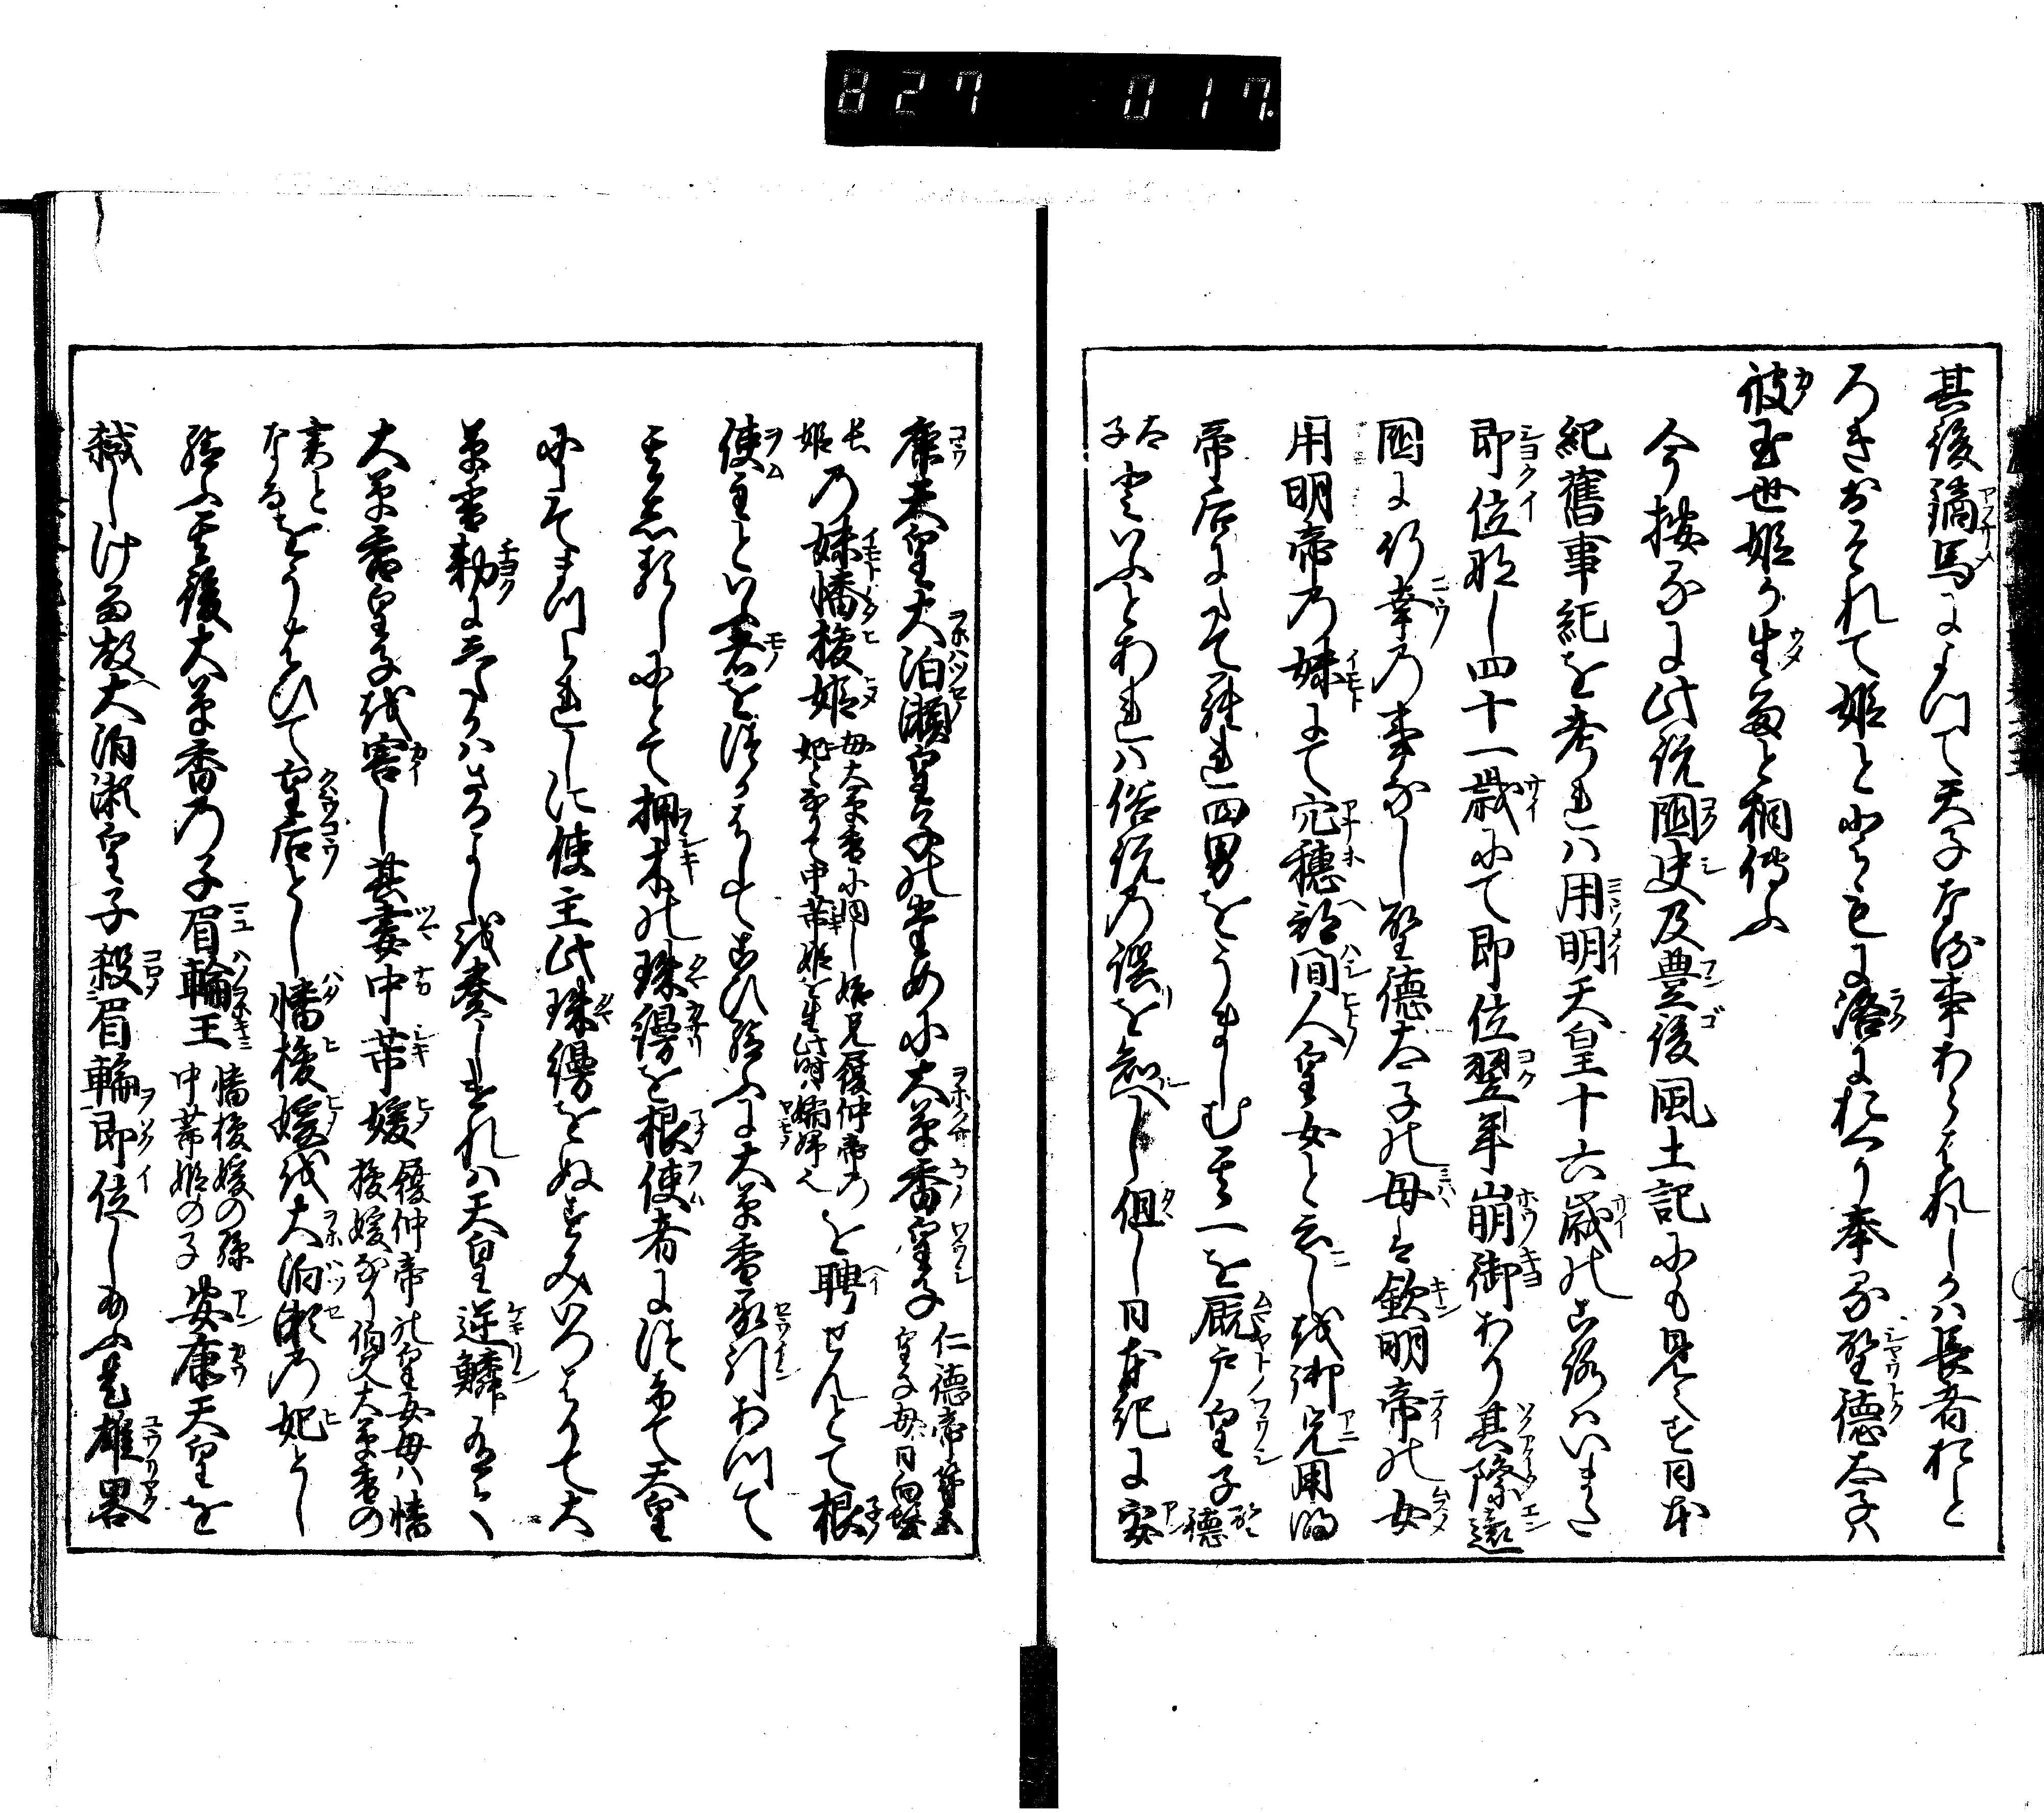 827 017.
其後鏑馬によつて天子なる事あらはれしかは長者おと
ろきおそれて姫とともに洛におくり奉る聖徳太子ハ
彼玉世姫か生るると相伝ふ
今按るに此説国史及豊後風土記にも見へす日本
紀舊事紀を考れハ用明天皇十六歳のころハいまた
即位なし四十一歳にて即位翌年崩御あり其際遠
国に行幸の事なし聖徳太子の母は欽明帝の女
用明帝の妹にて穴穂部間人皇女と云し越御兄用明
帝后にたて給れ四男をうましむ其一を厩戸皇子聖徳
太子といふとあれハ俗説の誤を知へし但し日本紀に安
康天皇大泊瀬皇子のために大草香皇子仁徳帝第五皇子母日向髪
長姫の妹幡梭姫を聘せんとて根
使主といふ者をつかはしてこひ給ふに大草香承引あつて
其志あらしにとて押木の珠縵を根使者につけて天皇
にたてまつられしに使主此珠縵をぬすみいつはりて大
草香勅にしたかハさるよし越奏しけれハ天皇逆鱗有て
大草香皇子越害し其妻中蒂媛履仲帝の皇女母ハ幡梭媛なり伯父大草香の
妻となるをうはひて皇后とし幡梭媛越大泊瀬の妃とし
給ふ其後大草香の子眉輪王幡梭媛の孫中蒂姫の子安康天皇を
弑しける故大泊瀬皇子殺眉輪即位し給ふ是雄略